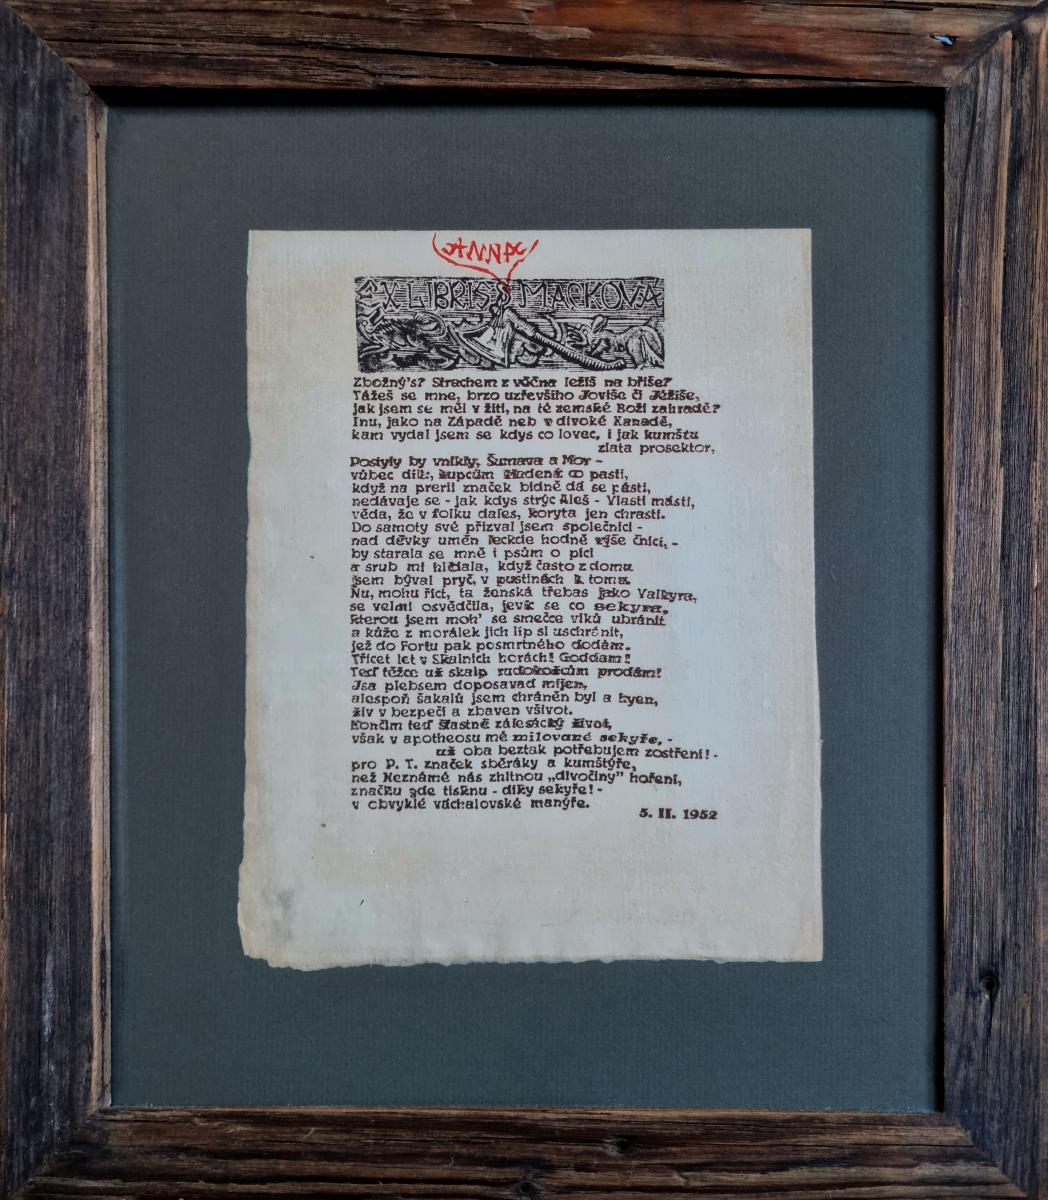 ANNA
EX LIBRIS MACKOVÁ
Zbožný's? Strachem z věčna ležíš na břiše?
Tážeš se mne, brzo uzřevšího Joviše či Ježíše,
jak jsem se měl v žití, na té zemské Boží zahradě?
Inu, jako na Západě neb v divoké Kanadě,
kam vydal jsem se kdys co lovec, i jak kumštu
zlata prosektor,
by vnikly, Šumava a Mor -
vůbec dílk, kupcům kladená co pasti,
když na prerii značek bídně dá se pásti,
nedávaje se - jak kdys strýc Aleš - Vlastí másti,
věda, že v folku dales, koryta jen chrastí.
Do samoty své přizval jsem společnici -
nad děvky uměn leckde hodně výše čnící, -
by starala se mně i psům o píci
a srub mi hlídala, když často z domu
jsem býval pryč, v pustinách k tomu.
Nu, mohu říct, ta ženská třebas jako Valkyra,
se velmi osvědčila, jevíc se co sekyra,
kterou jsem moh' se smečce vlků ubránit
a kůže z morálek jich líp si uschránit,
jež do Fortu pak posmrtného dodám.
Třicet let v Skalních horách! Goddam!
Teď těžce už skalp rudokožcům prodám!
Jsa plebsem doposavad míjen,
alespoň šakalů jsem chráněn byl a hyen,
živ v bezpečí a zbaven všivot.
Končím teď šťastně zálesácký život,
však v apotheosu mé milované sekyře, -
už oba beztak potřebujem zostření! -
pro P. T. značek sběráky a kumštýře,
než Neznámé nás zhltnou „divočiny" hoření,
značku zde tisknu - díky sekyře! -
v obvyklé váchalovské manýře.
5. II. 1952